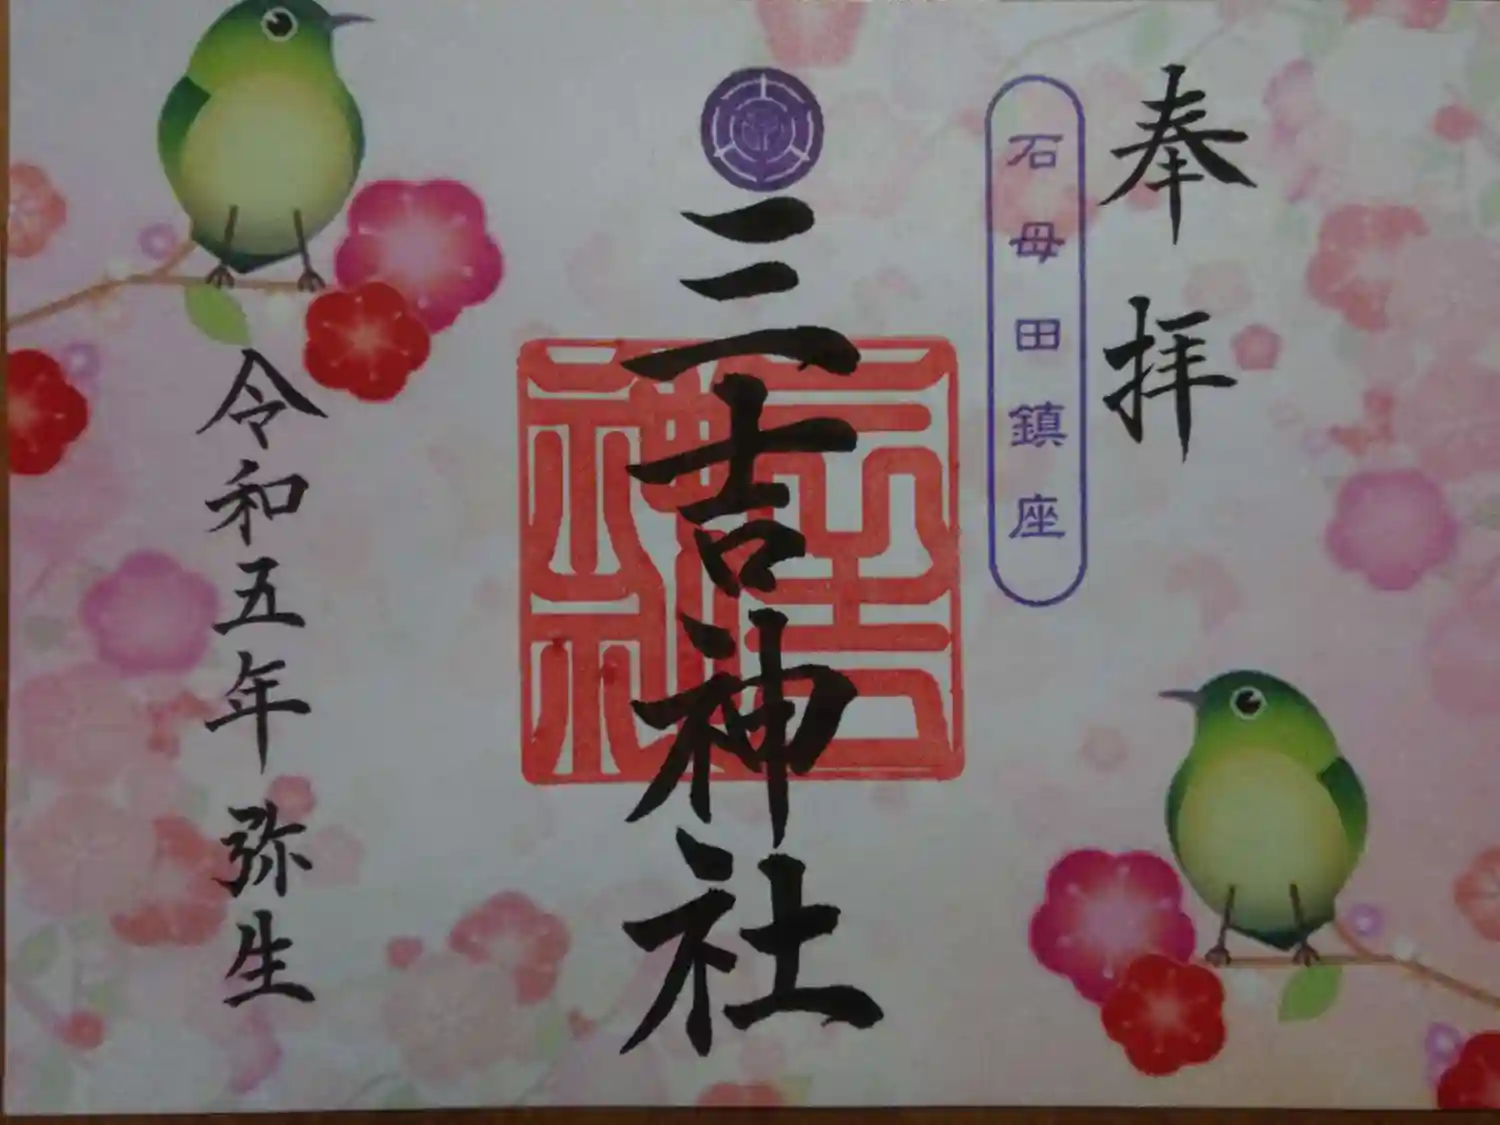 奉拝
石母田鎮座
三吉神社
三吉神社
令和五年 弥生